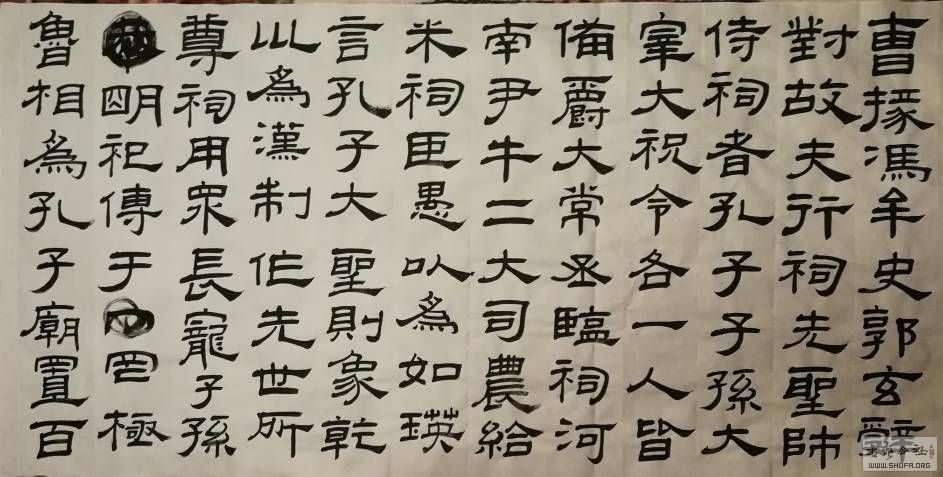 曹掾馮牟史郭玄辭
對故夫行祠先聖師
侍祠者孔子子孫大
宰大祝令各一人皆
備爵大常丞臨祠河
南尹牛二大司農給
米祠臣愚以為如瑛
言孔子大聖則象乾
巛為漢制作先世所
尊祠用眾長寵子孫
明祀傳于罔極
魯相為孔子廟置百
WWW.SHUFA.ORG